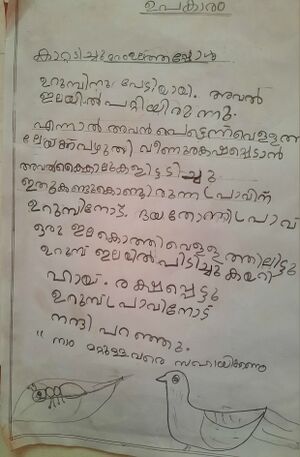 ഉപകാരം
കാറ്റടിച്ചുമരം
ഉറുമ്പിനു പേടിയായി. അവൻ
ഇലയിൽ പറ്റിയിരുന്നു.
എന്നാൽ അവൻ പെട്ടെന്ന് വെള്ളത്തി
ലേയക്ക് വഴുതി വീണു രക്ഷപ്പെടാൻ
അവൻ കൈകാലുകളിട്ടടിച്ചു.
ഇതുകണ്ടുകൊണ്ടിരുന്ന പ്രാവിന്
ഉറുമ്പിനോട്. ദയ തോന്നി പ്രാവ്
ഒരു ഇല കൊത്തിവെള്ളത്തിലിട്ടു
ഉറുമ്പ് ഇലയിൽ പിടിച്ചു കയറി
ഹായ്. രക്ഷപ്പെട്ടു
ഉറുമ്പ് പ്രാവിനോട്
നന്ദി പറഞ്ഞു.
" നാം മറ്റുള്ളവരെ സഹായിക്കണം